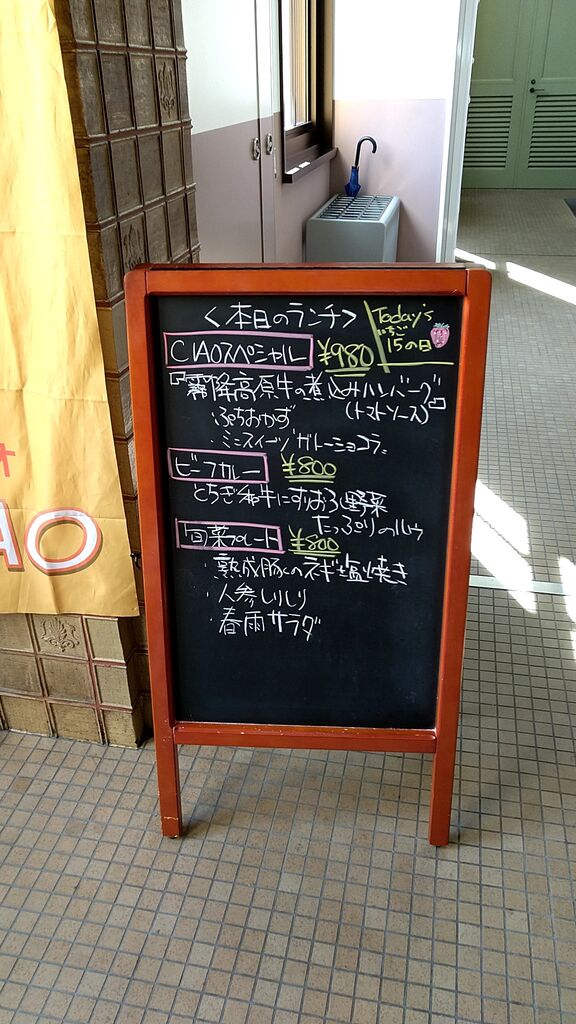 <本日のランチ>
Today's
いちご
15の日
CIAOスペシャル ¥980
『霧降高原牛の煮込みハンバーグ』
(トマトソース)
・ぷちおかず
・ミニスイーツ ガトーショコラ
ビーフカレー ¥800
とちぎ和牛にすりおろし野菜
たっぷりのルゥ
旬菜プレート ¥800
・熟成豚のネギ塩焼き
・人参しりしり
・春雨サラダ
AO